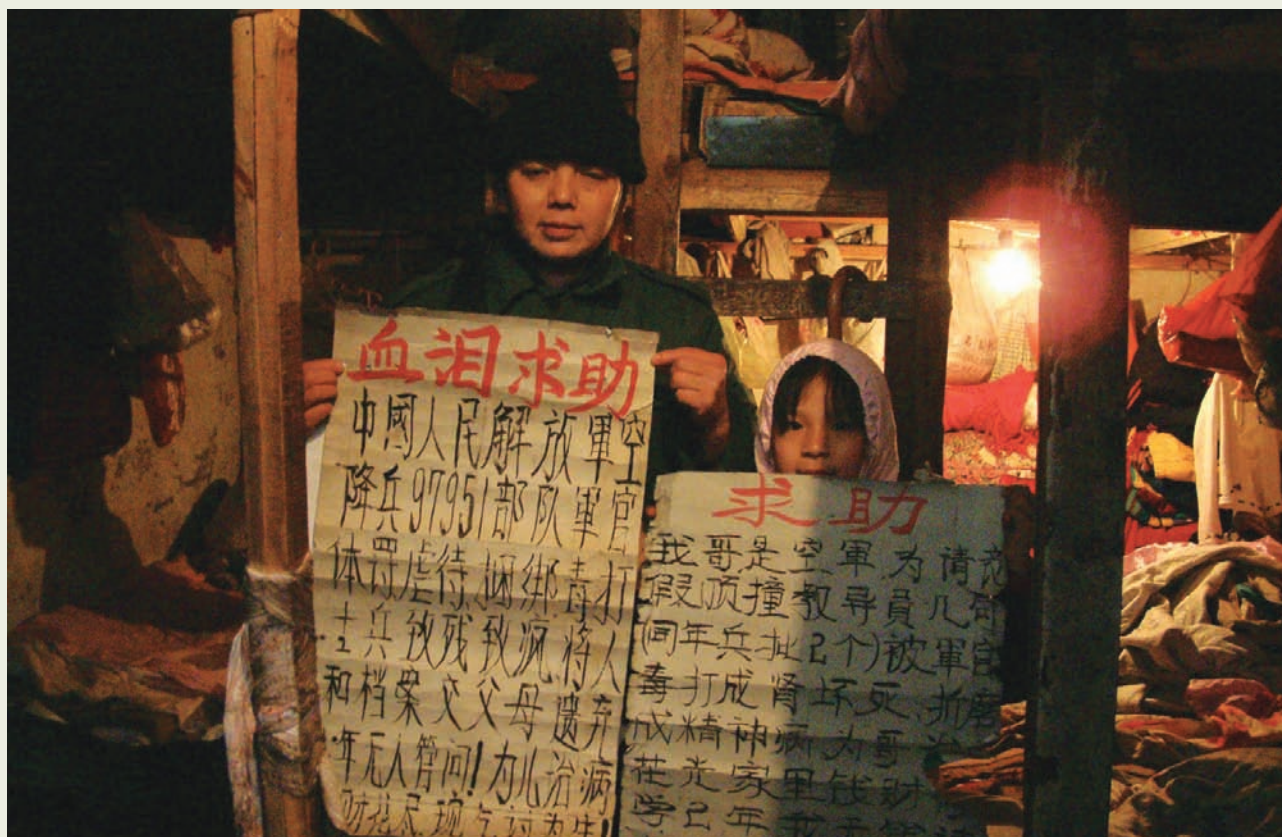 血泪求助
中國人民解放軍空
降兵97951部队軍官
体罚虐待捆绑毒打
士兵致残致疯,将人
和档案交父母遗弃
年无人管问!为儿治病
财花尽现乞讨为生!
求助
我哥是空軍为请
假顶撞教导員几
(同年兵批2个)被軍官
毒打成肾坏死,折磨
成精神病为哥治
花光家里钱财
学2年我